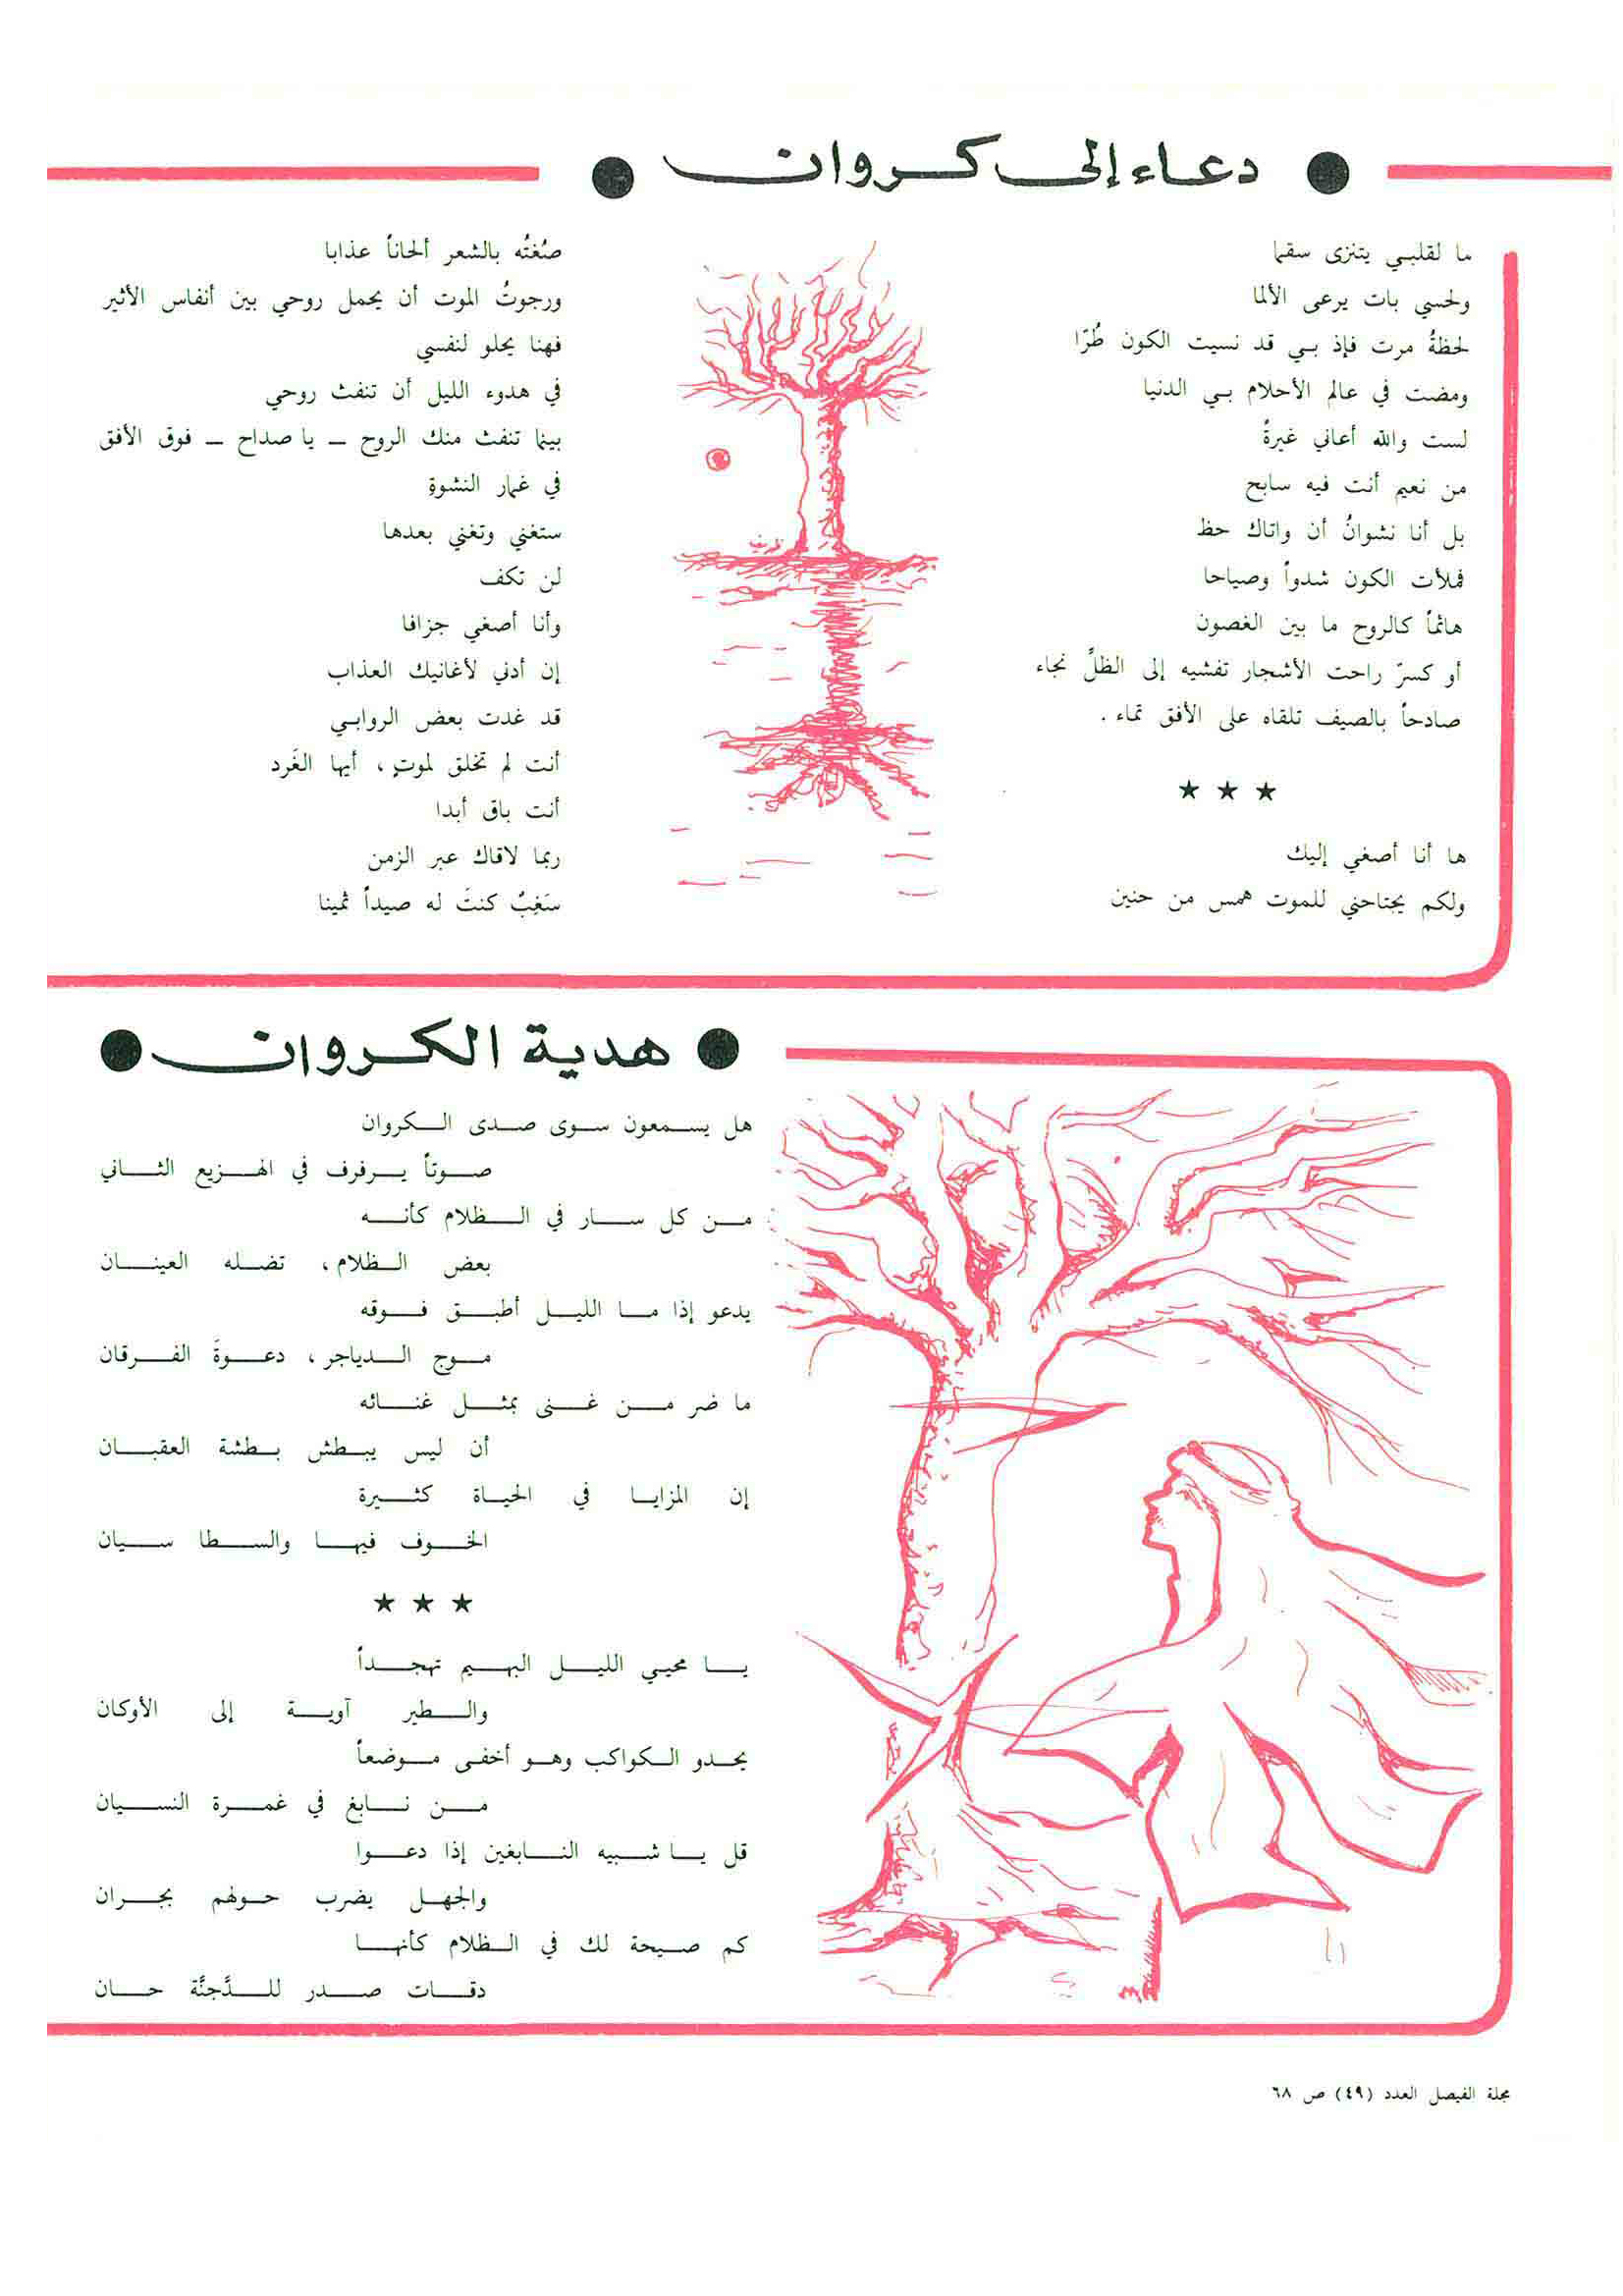 دعاء إلى كروان
ما لقلبي يتنزى سقما
ولحسي بات يرعى الألما
لحظةُ مرت فإذ بي قد نسيت الكون طُرّا
ومضت في عالم الأحلام بي الدنيا
لست والله أعاني غيرةً
من نعيم أنت فيه سابح
بل أنا نشوانُ أن واتاك حظ
فملأت الكون شدواً وصياحا
هائماً كالروح ما بين الغصون
أو كسرّ راحت الأشجار تفشيه إلى الظلِّ نجاء
صادحاً بالصيف تلقاه على الأفق تماء .
★ ★ ★
ها أنا أصغي إليك
ولكم يجتاحني للموت همس من حنين
صُغتُه بالشعر ألحاناً عذابا
ورجوتُ الموت أن يحمل روحي بين أنفاس الأثير
فهنا يحلو لنفسي
في هدوء الليل أن تنفث روحي
بينما تنفث منك الروح – يا صداح – فوق الأفق
في غمار النشوةِ
ستغني وتغني بعدها
لن تكف
وأنا أصغي جزافا
إن أدني لأغانيك العذاب
قد غدت بعض الروابي
أنت لم تخلق لموتٍ ، أيها الغَرد
أنت باق أبدا
ربما لاقاك عبر الزمن
سَغِبٌ كنتَ له صيداً ثمينا
هدية الكروان
هل يسمعون سوى صدى الكروان
صوتاً يرفرف في الهزيع الثاني
من كل سار في الظلام كأنه
بعض الظلام ، تضله العينان
يدعو إذا ما الليل أطبق فوقه
موج الدياجر ، دعوةَ الفرقان
ما ضر من غنى بمثل غنائه
أن ليس يبطش بطشة العقبان
إن المزايا في الحياة كثيرة
الخوف فيها والسطا سيان
★ ★ ★
يا محيي الليل البهيم تهجداً
والطير آوية إلى الأوكان
يحدو الكواكب وهو أخفى موضعاً
من نابغ في غمرة النسيان
قل يا شبيه النابغين إذا دعوا
والجهل يضرب حولهم بجران
كم صيحة لك في الظلام كأنها
دقات صدر للدَّجنَّة حان
مجلة الفيصل العدد (٤٩) ص ٦٨